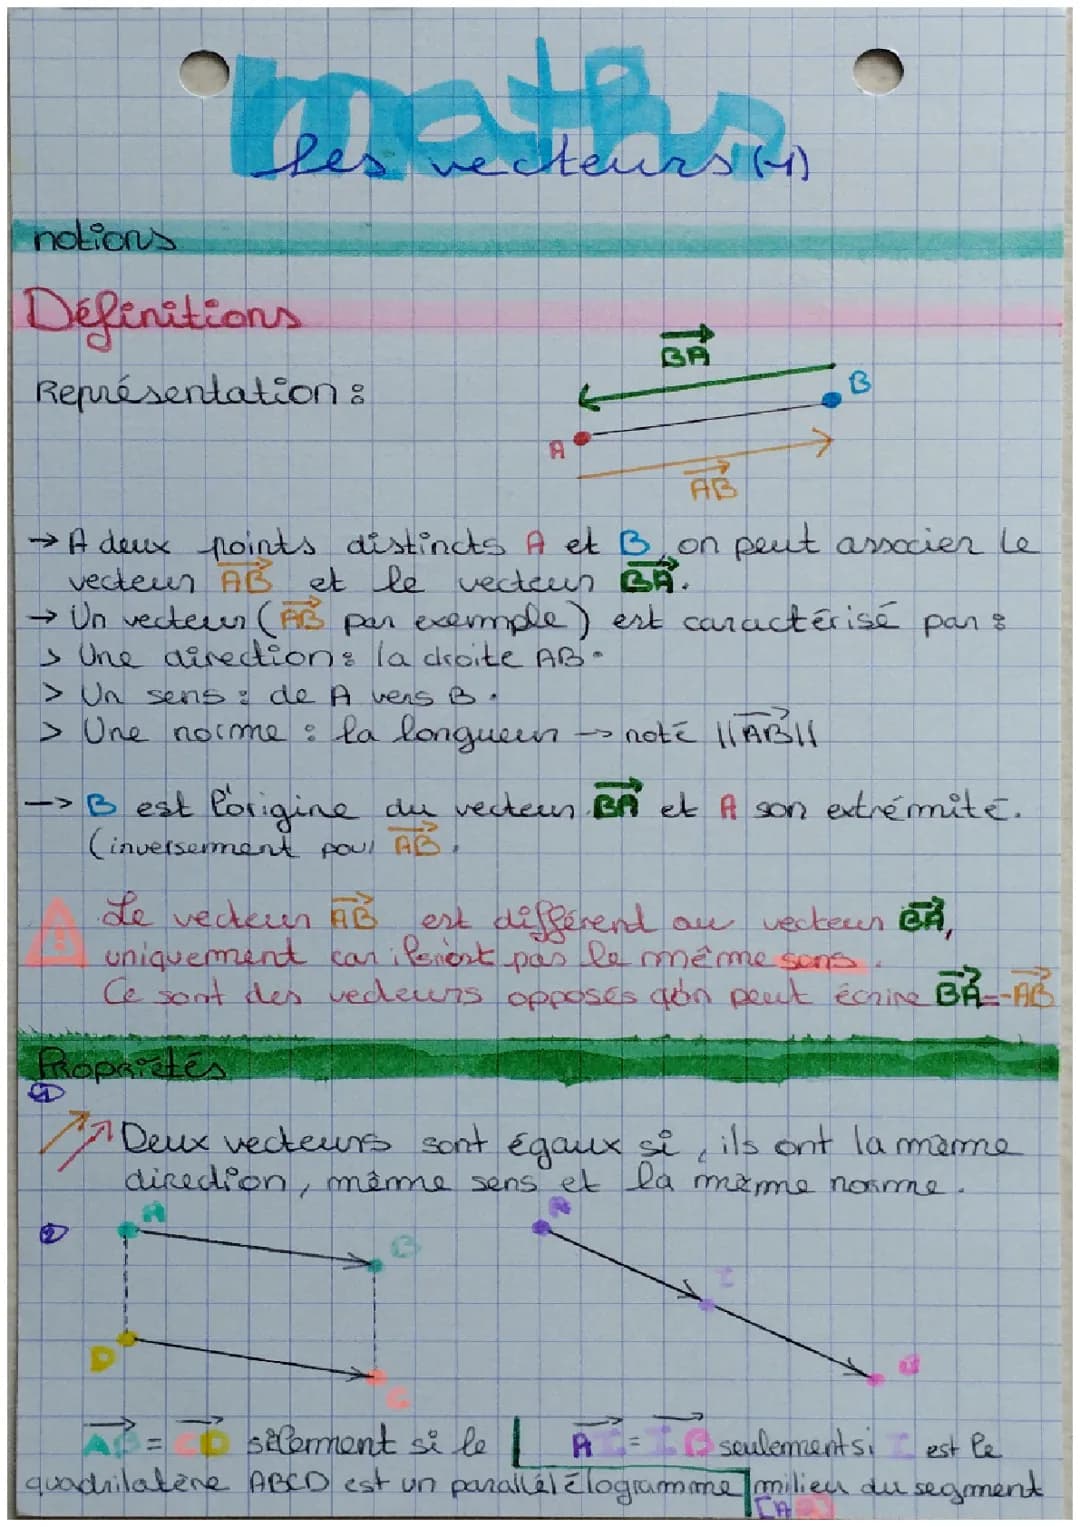 maths
les vecteurs (1)
notions
Définitions
BA
Représentation :
B
A
AB
→ A deux points distincts A et B, on peut associer le
vecteur AB et le vecteur BA.
→ Un vecteur (AB par exemple) est caractérisé par :
> Une direction : la droite AB.
> Un sens : de A vers B.
> Une norme : la longueur → noté ||AB||
--> B est l'origine du vecteur BA et A son extrémité.
(inversemment pour AB.
Le vecteur AB est différend au vecteur BA,
uniquement car ils n'ont pas le même sens.
Ce sont des vecteurs opposés qu'on peut écrire BA=-AB
Propriétés
1
Deux vecteurs sont égaux si, ils ont la même
direction, même sens et la même norme.
2
A
B
D
C
A
I
B
AB = CD seulement si le
quadrilatère ABCD est un parallélélogramme
AI = IB seulement si I est le
milieu du segment
[AB]